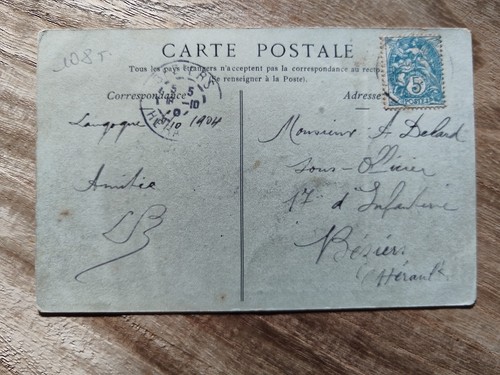 108 T.
CARTE POSTALE
Tous les pays étrangers n'acceptent pas la correspondance au recto
(Se renseigner à la Poste).
Correspondance
Adresse
5
Langogne 1904
Amitié
LB
Monsieur F Delard
sous-Officier
17e d'Infanterie
Béziers
(Hérault)